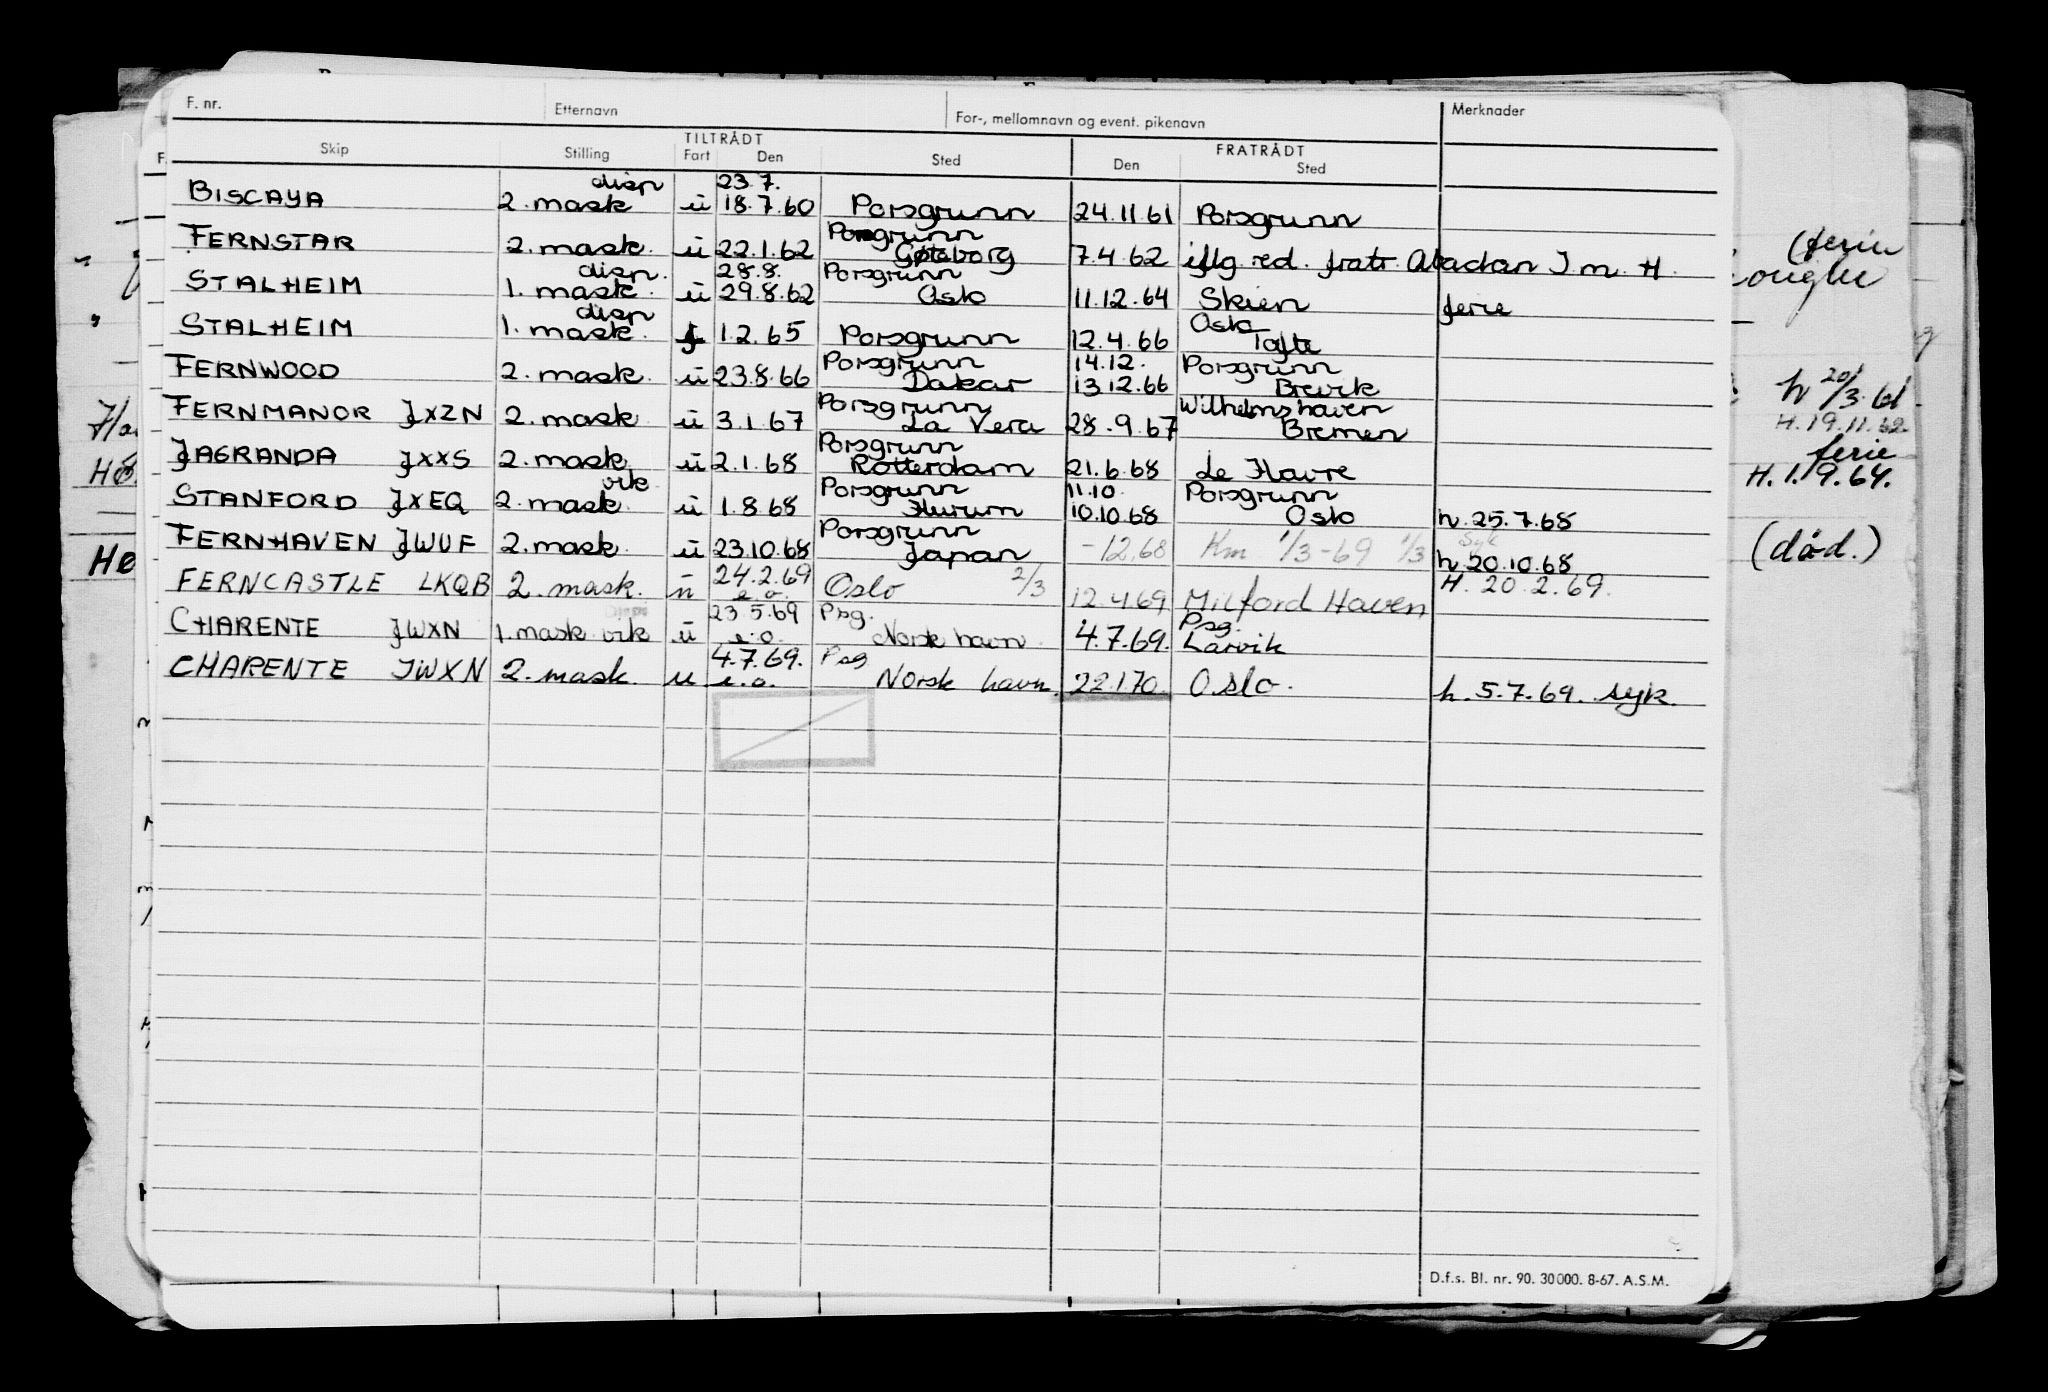 F. nr. Etternavn For-, mellomnavn og event. pikenavn Merknader
TILTRÅDT FRATRÅDT
Skip Stilling Fart Den Sted Den Sted
disp 23.7.
BISCAYA 2. mask ū 18.7.60 Porsgrunn 24.11.61 Porsgrunn
Porsgrunn
FERNSTAR 2. mask. ū 22.1.62 Gøteborg 7.4.62 iflg red. fratr. Abadan I m. H.
disp. 28.8. Porsgrunn
STALHEIM 1. mask. ū 29.8.62 Oslo 11.12.64 Skien ferie
disp Oslo
STALHEIM 1. mask. f 1.2.65 Porsgrunn 12.4.66 Tofte
Porsgrunn 14.12. Porsgrunn
FERNWOOD 2. mask. ū 23.8.66 Dakar 13.12.66 Brevik
Porsgrunn Wilhelmshaven
FERNMANOR JXZN 2. mask ū 3.1.67 La Vera 28.9.67 Bremen
Porsgrunn
JAGRANDA JXXS 2. mask ū 2.1.68 Rotterdam 21.6.68 Le Havre
vik Porsgrunn 11.10. Porsgrunn
STANFORD JXEQ 2. mask ū 1.8.68 Hurum 10.10.68 Oslo h. 25.7.68
Porsgrunn Syk
FERNHAVEN JWUF 2. mask. ū 23.10.68 Japan -12.68 Km 1/3-69 1/3 h. 20.10.68
24.2.69 2/3 H. 20.2.69.
FERNCASTLE LKQB 2. mask. ū e.o. Oslo 12.4.69 Milford Haven
23.5.69 Psg. Psg.
CHARENTE JWXN 1. mask vik ū e.o. Norsk havn. 4.7.69. Larvik
4.7.69. Psg
CHARENTE JWXN 2. mask. u e.o. Norsk havn. 22.1.70. Oslo. h. 5.7.69. syk.
D.f.s. Bl. nr. 90. 30000. 8-67. A.S.M.
(ferie
h 20/3.61
H. 19.11.62
ferie
H. 1.9.64.
(død.)